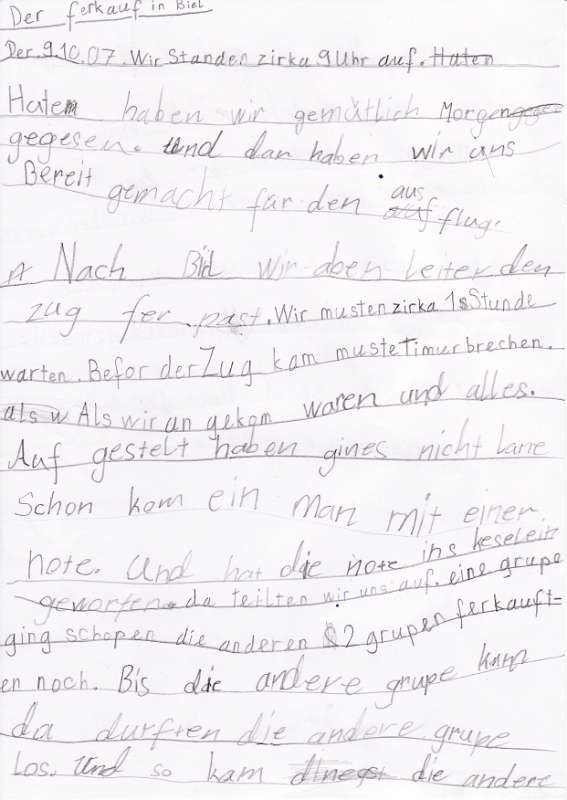 Der ferkauf in Biel
Der.9.10.07. Wir Standen zirka 9 Uhr auf. Haten
Haten haben wir gemütlich Morgen
gegesen. Und dan haben wir uns
Bereit gemacht für den ausflug.
Nach Biel wir aben leiter den
zug fer past. Wir musten zirka 1 Stunde
warten. Befor der Zug kam muste Timur brechen.
als w Als wir an gekom waren und alles.
Auf gestelt haben gines nicht lane
Schon kom ein man mit einer
note. Und hat die note ins keselein
geworfen. da teilten wir uns auf. eine grupe
ging schopen die anderen 2 grupen ferkauft-
en noch. Bis die andere grupe kam
da durften die andere grupe
los. Und so kam die andere